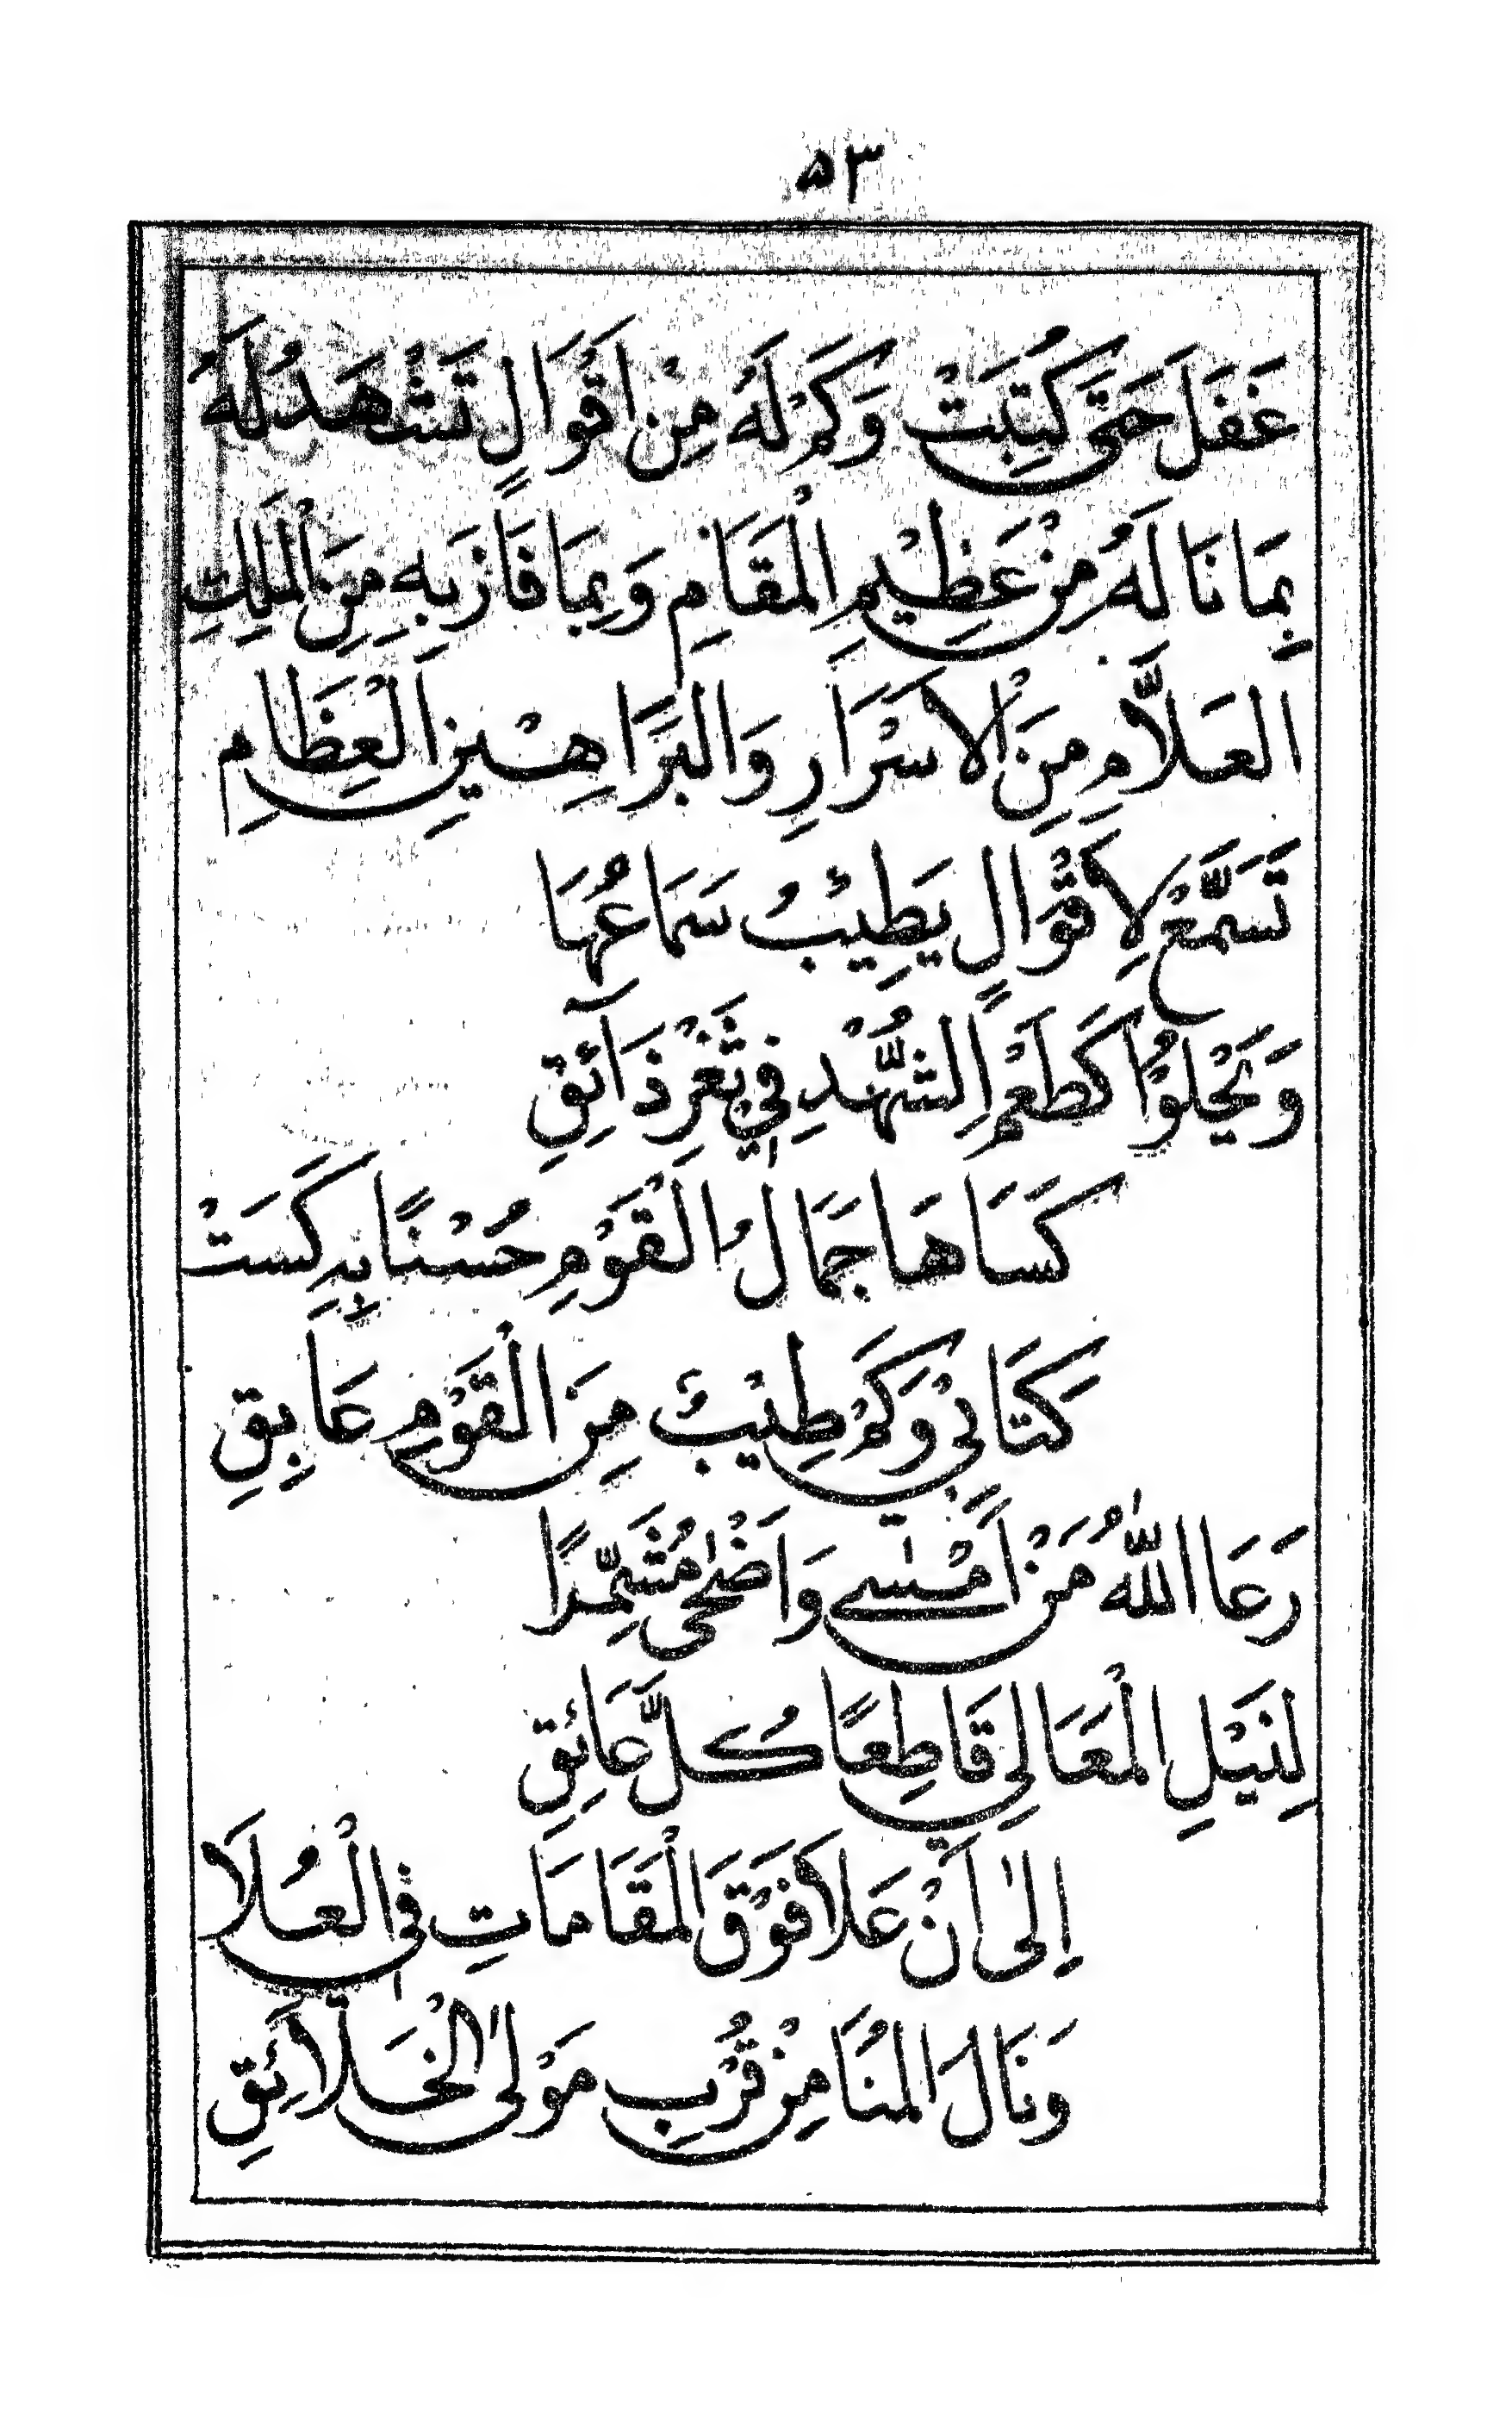 ٥٣
غَفَلَ حَتَّى كُتِبَتْ وَكَمْ لَهُ مِنْ اَقْوَالٍ تَشْهَدُ لَهُ
بِمَا نَالَهُ مِنْ عَظِيْمِ الْمَقَامِ وَبِمَا فَازَ بِهِ مِنَ الْمَلِكِ
العَلَّامِ مِنَ الْاَسْرَارِ وَالبَرَاهِيْنِ الْعِظَامِ
تَسَمَّعْ لِاَقْوَالٍ يَطِيْبُ سَمَاعُهَا
وَيَحْلُوْا كَطَعْمِ الشُّهْدِ فِي ثَغْرِ ذَآئِقِ
كَسَاهَا جَمَالُ الْقَوْمِ حُسْنًا بِهِ كَسَتْ
كِتَابِيْ وَكَمْ طِيْبٌ مِنَ الْقَوْمِ عَابِقِ
رَعَا اللّٰهُ مَنْ اَمْسٰى وَاَضْحٰى مُشَمِّرًا
لِنَيْلِ الْمَعَالِي قَاطِعًا كُلَّ عَائِقِ
اِلٰى اَنْ عَلَا فَوْقَ الْمَقَامَاتِ فِي الْعُلَا
وَنَالَ الْمُنَا مِنْ قُرْبِ مَوْلَى الْخَلَائِقِ